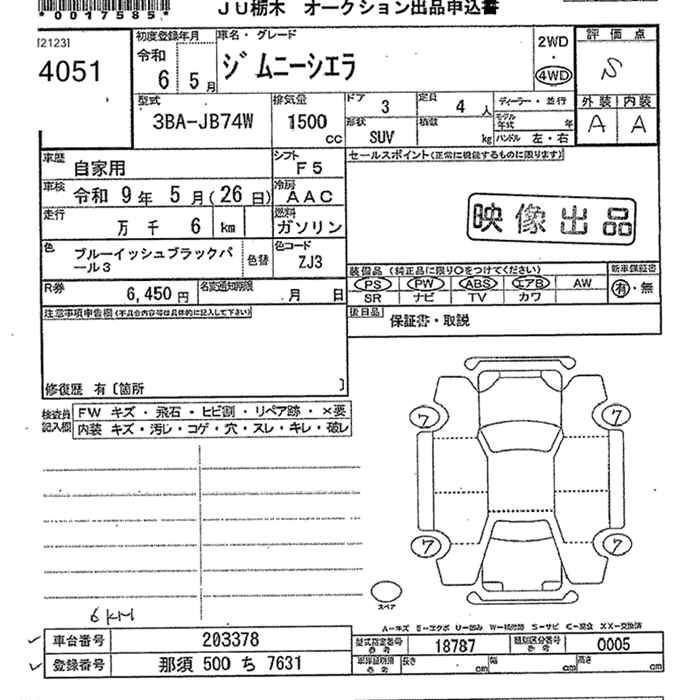 *0017585*
JU栃木 オークション出品申込書
[2123]
4051
初度登録年月
令和
6 5月
車名・グレード
ジムニーシエラ
2WD
・
4WD
評価点
S
外装 内装
A A
型式
3BA-JB74W
排気量
1500
cc
ドア 3
定員 4 人
ディーラー・並行
形状
SUV
積載
kg
モデル年式 年
ハンドル 左・右
車歴
自家用
シフト
F5
セールスポイント(正常に機能するものに限ります)
車検
令和 9年 5月(26日)
冷房
AAC
走行
万 千 6 km
燃料
ガソリン
映像出品
色
ブルーイッシュブラックパール3
色替
色コード
ZJ3
装備品(純正品に限り○をつけてください)
新車保証書
PS PW ABS エアB AW
有・無
SR ナビ TV カワ
R券
6,450円
名変通知期限
月 日
後日品
保証書・取説
注意事項申告欄(不具合内容等は具体的に記入して下さい)
修復歴 有〔箇所 〕
検査員記入欄
FW キズ・飛石・ヒビ割・リペア跡・×要
内装 キズ・汚レ・コゲ・穴・スレ・キレ・破レ
7 7
7 7
スペア
6KM
A-キズ E-エクボ U-凹み W-補修跡 S-サビ C-腐食 XX-交換済
車台番号 203378
型式指定番号 参考 18787
類別区分番号 参考 0005
登録番号 那須 500 ち 7631
参考
長さ cm
幅 cm
高さ cm